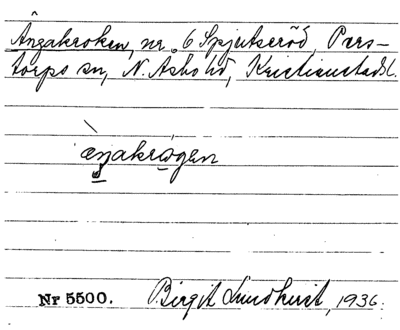 Ängakroken, nr 6 Spjutseröd, Pers-
torps sn, N. Åsbo hd, Kristianstads l.
æŋakrogen
Nr 5500. Birgit Lundkvist, 1936.